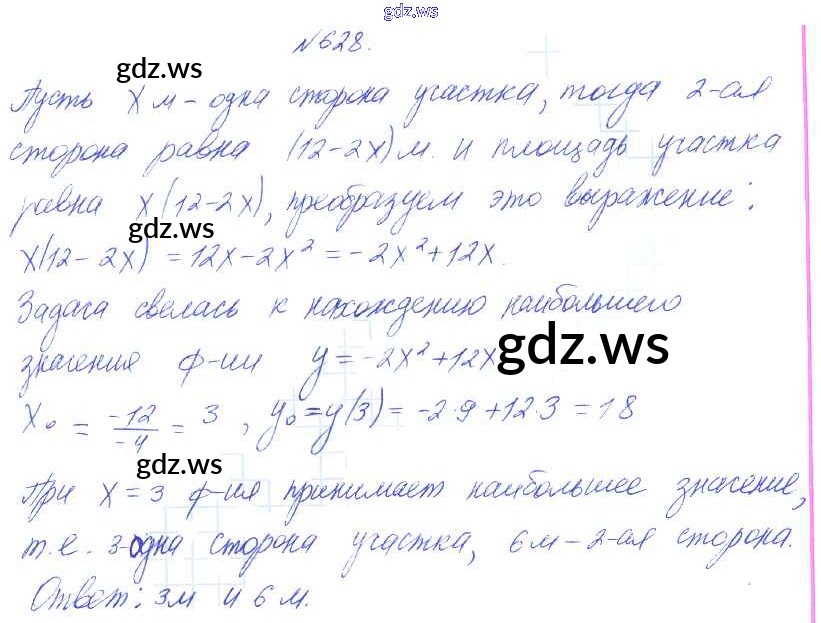 gdz.ws
№628.
gdz.ws
Пусть x м - одна сторона участка, тогда 2-ая
сторона равна (12-2x) м. и площадь участка
равна x(12-2x), преобразуем это выражение:
gdz.ws
x(12-2x) = 12x-2x² = -2x²+12x.
Задача свелась к нахождению наибольшего
значения ф-ии y = -2x²+12x
gdz.ws
x₀ = -12/-4 = 3, y₀=y(3) = -2·9+12·3 = 18
gdz.ws
При x=3 ф-ия принимает наибольшее значение,
т.е. 3-одна сторона участка, 6м-2-ая сторона.
Ответ: 3м и 6м.